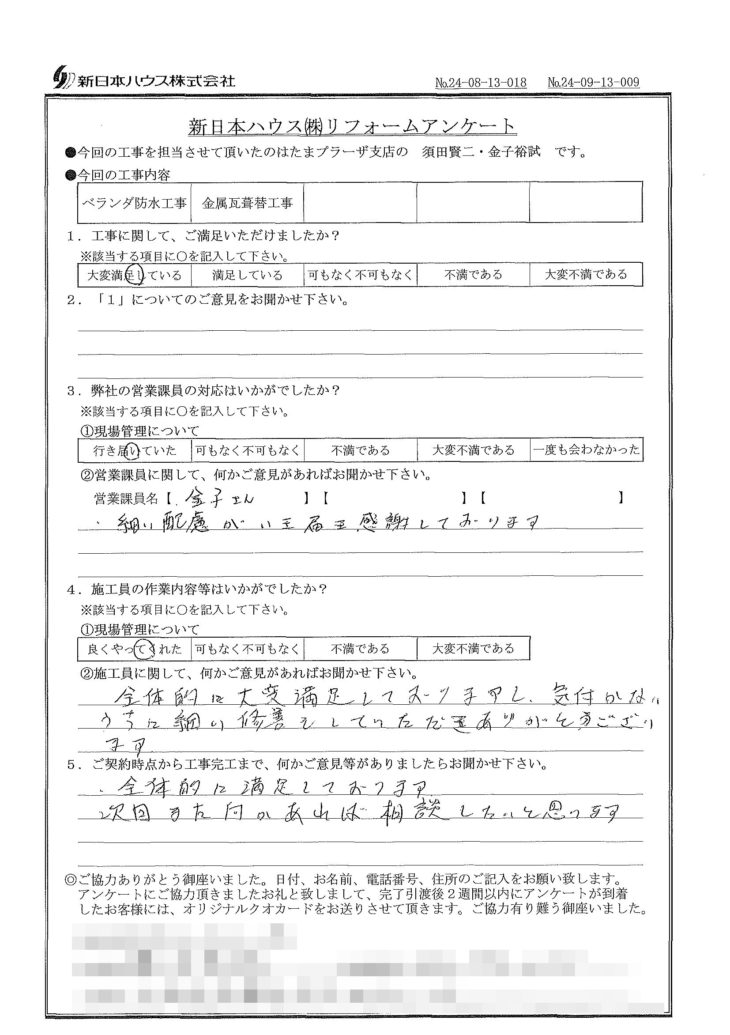 新日本ハウス株式会社 No.24-08-13-018 No.24-09-13-009
新日本ハウス㈱リフォームアンケート
●今回の工事を担当させて頂いたのはたまプラーザ支店の 須田賢二・金子裕試 です。
●今回の工事内容
ベランダ防水工事 金属瓦葺替工事
1．工事に関して、ご満足いただけましたか？
※該当する項目に○を記入して下さい。
大変満足している 満足している 可もなく不可もなく 不満である 大変不満である
2．「1」についてのご意見をお聞かせ下さい。
3．弊社の営業課員の対応はいかがでしたか？
※該当する項目に○を記入して下さい。
①現場管理について
行き届いていた 可もなく不可もなく 不満である 大変不満である 一度も会わなかった
②営業課員に関して、何かご意見があればお聞かせ下さい。
営業課員名【 金子さん 】【 】【 】
・細い配慮がいき届き感謝しております
4．施工員の作業内容等はいかがでしたか？
※該当する項目に○を記入して下さい。
①現場管理について
良くやってくれた 可もなく不可もなく 不満である 大変不満である
②施工員に関して、何かご意見があればお聞かせ下さい。
全体的に大変満足しておりますし、気付かない
うちに細い修善をしていただきありがとうござい
ます
5．ご契約時点から工事完工まで、何かご意見等がありましたらお聞かせ下さい。
・全体的に満足しております
次回また何かあれば相談したいと思います
◎ご協力ありがとう御座いました。日付、お名前、電話番号、住所のご記入をお願い致します。
アンケートにご協力頂きましたお礼と致しまして、完了引渡後２週間以内にアンケートが到着
したお客様には、オリジナルクオカードをお送りさせて頂きます。ご協力有り難う御座いました。